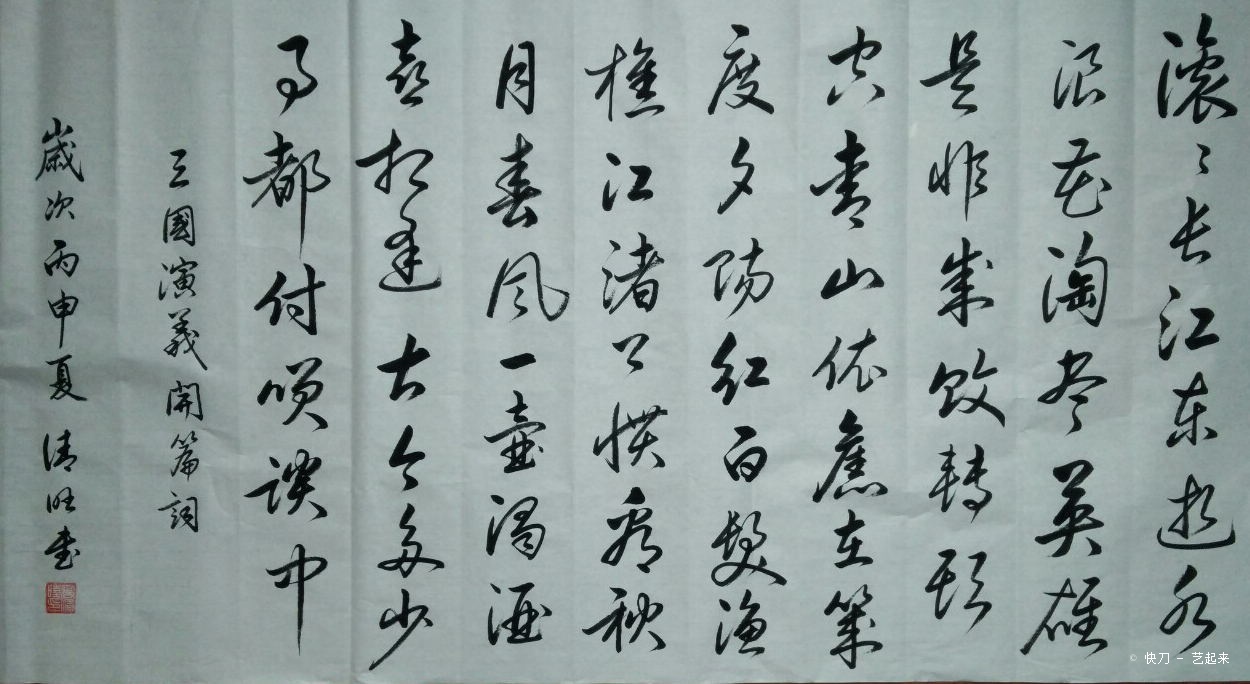 滚〻长江东逝水
浪花淘尽英雄
是非成败轉头
空青山依舊在幾
度夕阳红白髮渔
樵江渚上惯看秋
月春风一壶浊酒
喜相逢古今多少
事都付笑谈中
三國演義開篇詞
歲次丙申夏清旺书
© 快刀 - 艺起来